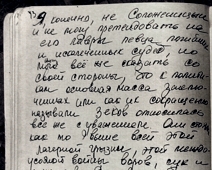 Я конечно, не Солженицын
и не могу претендовать на
его лавры певца
и искалеченных судеб, но
всё же сказать со
своей стороны, что к полити-
кам основная масса заклю-
ченных или как их сокращенно
называли зеков относилась
всё же с уважением. Они
как то выше всей этой
лагерной грызни, этой псевдо-
усатой войны воров, сук и